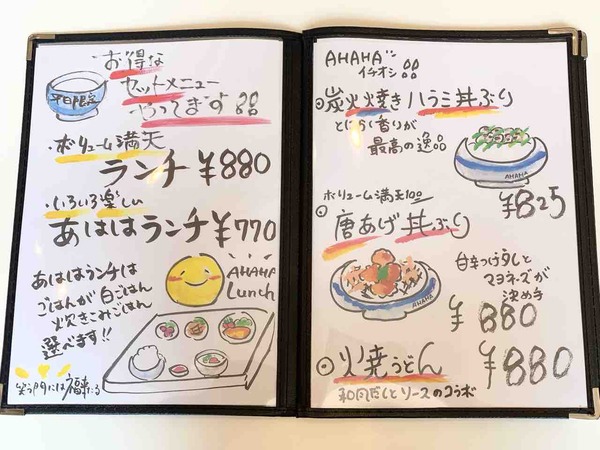 お得な
セットメニュー
やってます!!
平日限定
・ボリューム満天
ランチ ¥880
・いろいろ楽しい
あははランチ ¥770
あははランチは
ごはんが白ごはん
炊きこみごはん
選べます!!
AHAHA
Lunch
笑う門には福来たる
AHAHA
イチオシ!!
炭火焼きハラミ丼ぶり
とにかく香りが
最高の逸品
AHAHA
¥825
ボリューム満天100
唐あげ丼ぶり
甘辛つけダレと
マヨネーズが
決め手
AHAHA
¥880
火焼うどん ¥880
和風だしとソースのコラボ